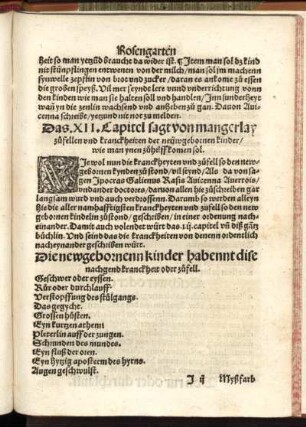 Rosengarten
heit so man yezũd braucht da wider ist. ¶ Item man sol dz kind
nit stünpflingen entwenen von der milch/ man sol jm machenn
symwelle zepflin von brot und zucker/ daran es ankome zu essen
die großen speyß. Vil mer seynde lere unnd underrichtung vonn
den kinden wie man sie halten soll und handlen/ Inn sunderheyt
wañ yn die zeen wachsend unnd anheben zu gan. Davon Auicen
na schreibe/ yezund nit not zu melden.
Das .XII. Capitel sagt von mangerlay
zůfellen und kranckheiten der neüwgebornen kinder/
wie man ynen zůhilff komen sol.
Wie wol nun die kranckheyten und zůfell so den new-
gebornen kynden zůstond/ vil seynd/ Als da von sa-
gen Ipocras Galienus Rasis Auicenna Auerrois/
und ander doctores/ darvon allen hie zůschreiben gar
lang sam wurd und auch verdriessen. Darumb so werden allein
hie die aller namhafftigsten kranckheyten und zůfell/ so den new-
gebornen kindelin zůstond/ geschriben/ in einer ordnung nach-
einander. Damit auch volendet würt das .xij. capitel uñ diß gãtz
büchlin. Und sind das die kranckheiten von denenn ordenlich
nacheynander geschriben würt.
Die newgebornenn kinder habennt dise
nachgend kranckheyt oder zůfell.
Geschwer oder eyssen.
Rür oder durchlauff
Verstopffung des stůlgangs.
Das gegycht.
Grossen hůsten.
Eyn kurtzen athem
Pleterlin auff der zungen.
Schrunden des mundes.
Eyn fluß der oren.
Eyn hytzig apostem des hyrns.
Augen geschwulst.
Myßfarb